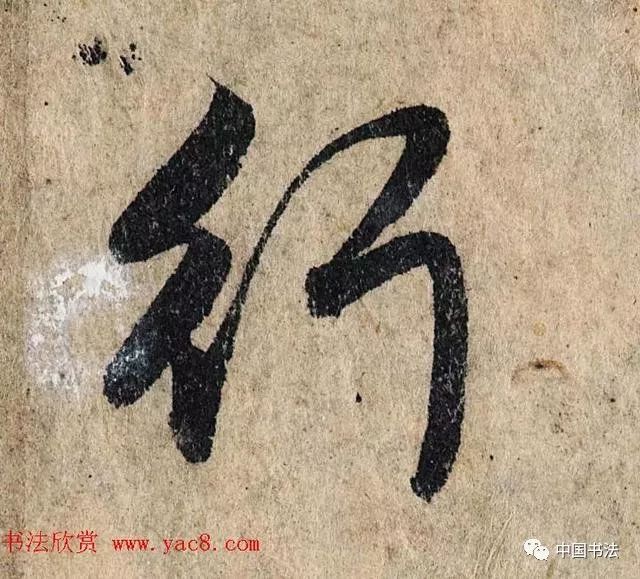 行
书法欣赏 www.yac8.com
中国书法